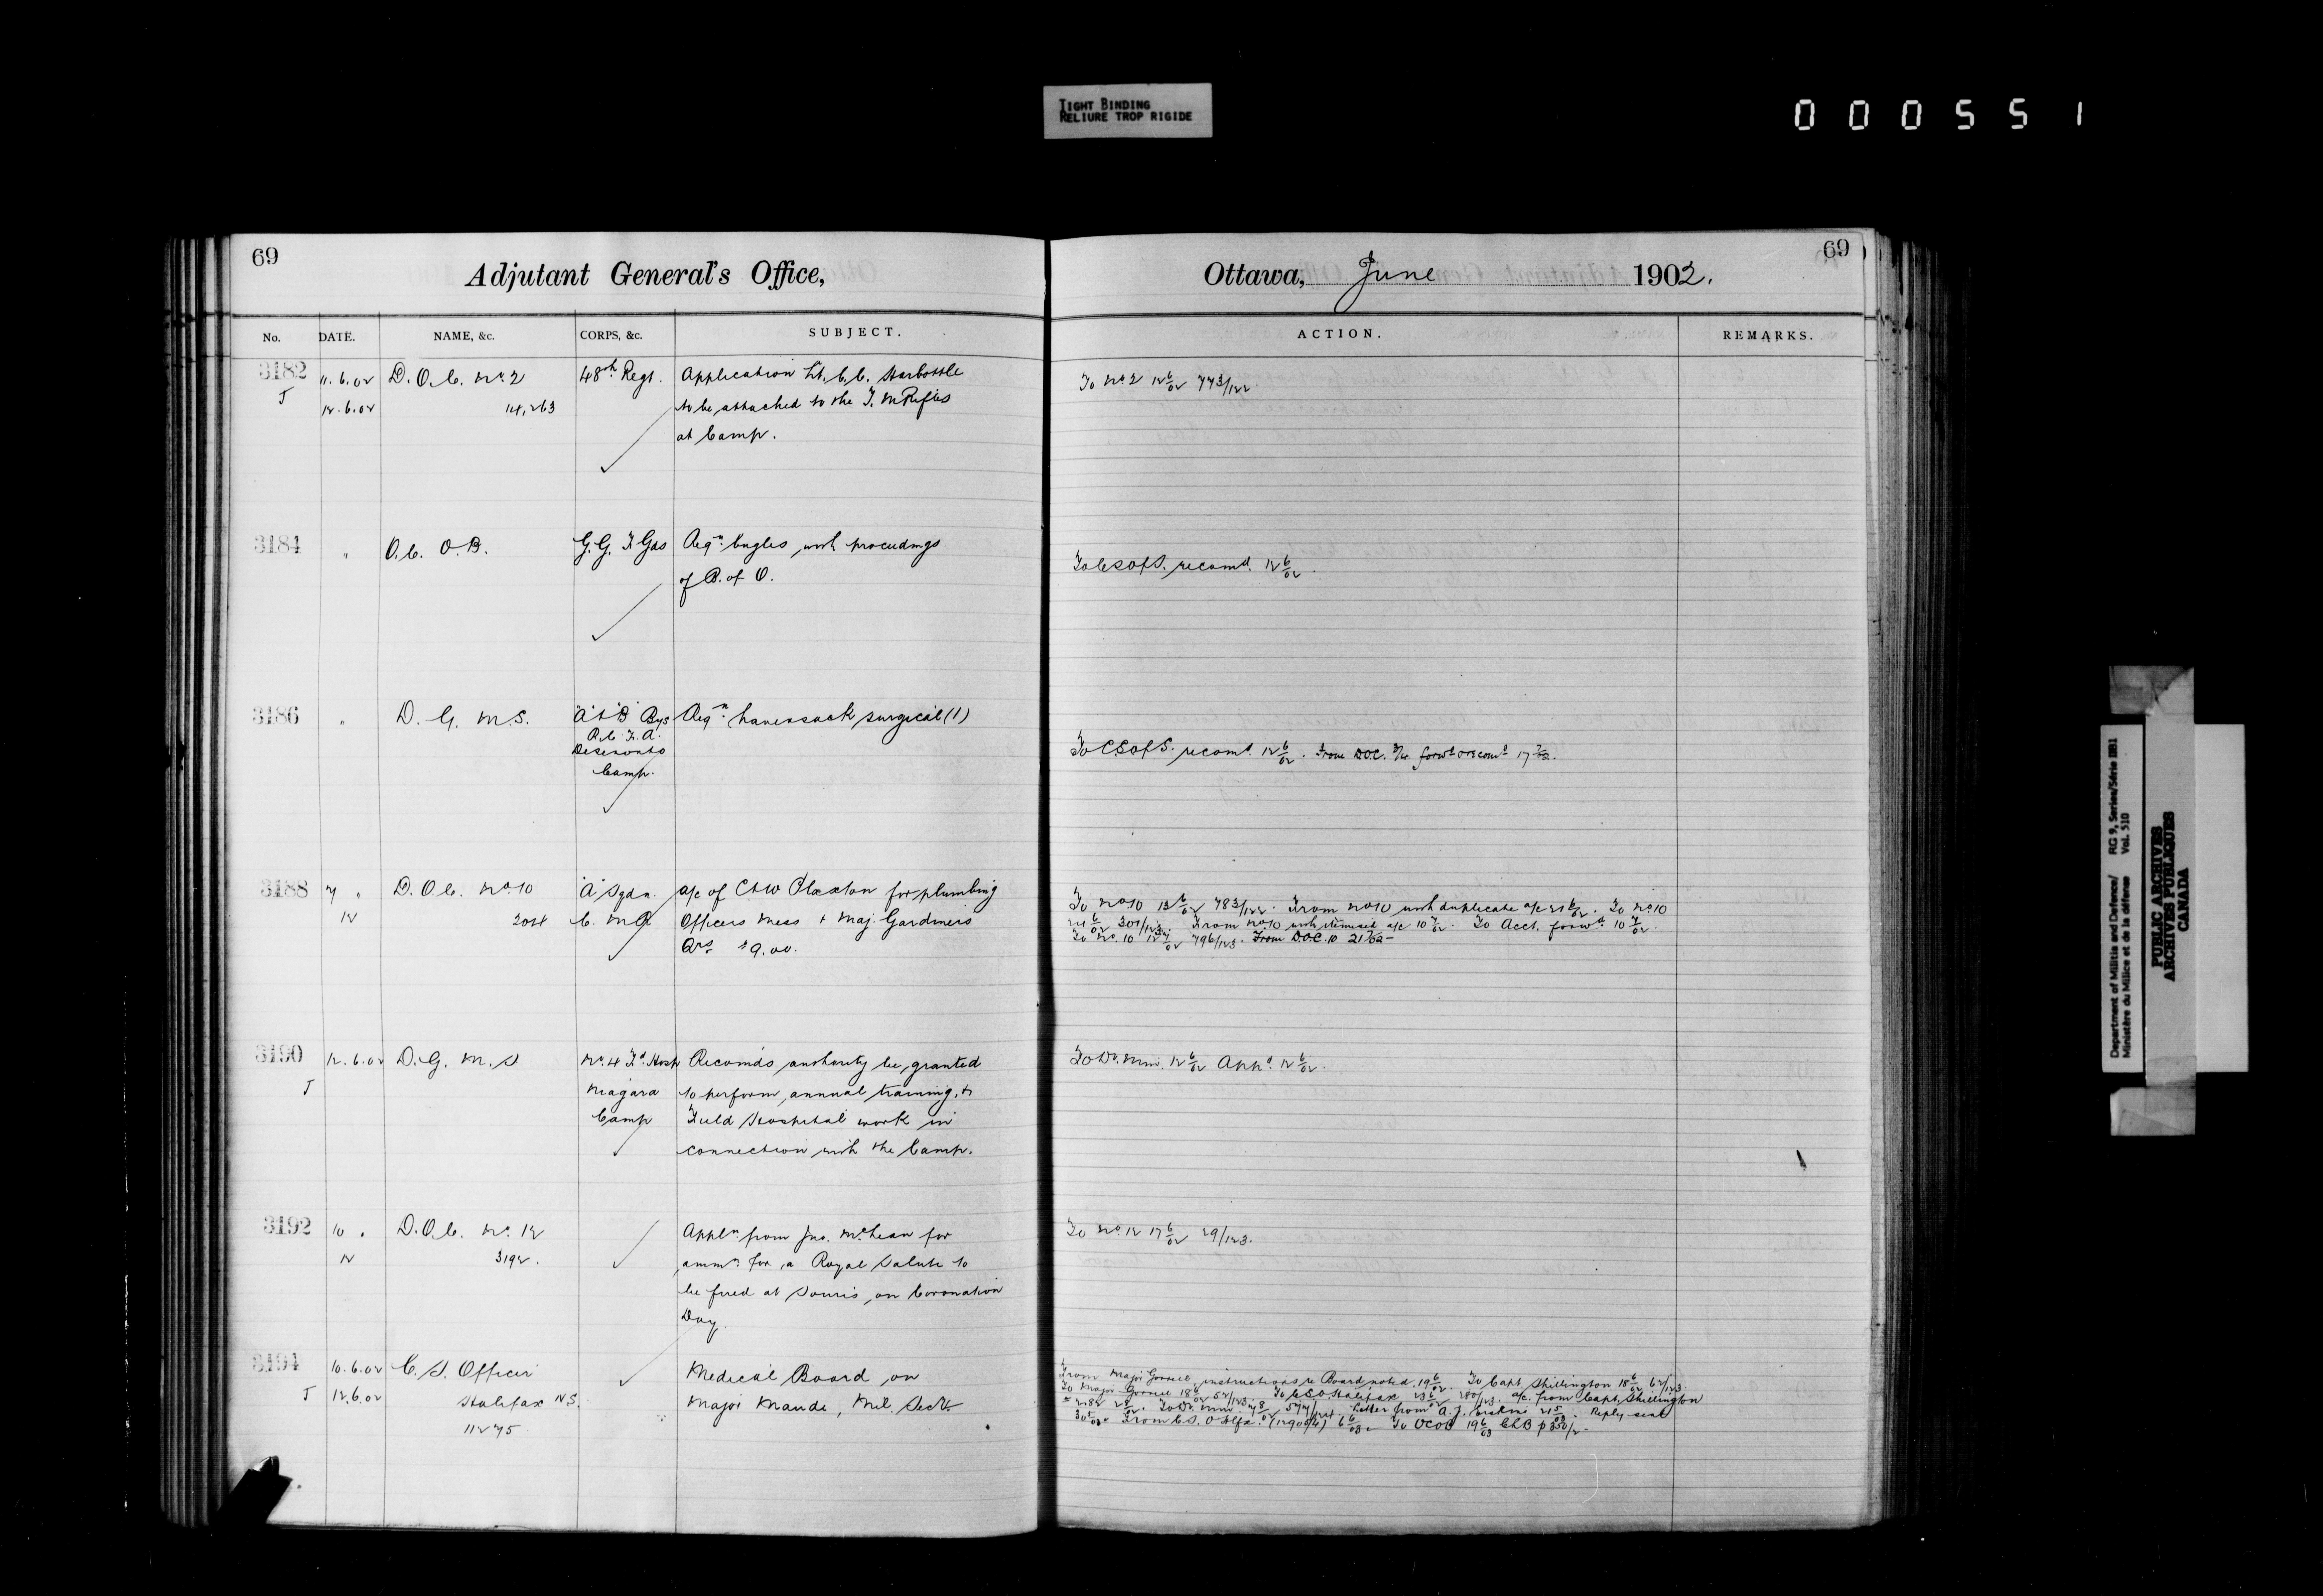 TIGHT BINDING
RELIURE TROP RIGIDE
000551
69
Adjutant General's Office,
No. DATE. NAME, &c. CORPS, &c. SUBJECT.
3182 11.6.02 D.O.C. No. 2 48th Regt. Application Lt. C.C. Harbottle
J 12.6.02 14,263 to be attached to the T. M Rifles
at Camp.
3184 " O.C. O.B. G.G. F Gds Reqn. bugles with proceedings
of B. of O.
3186 " D. G. M.S. "A" & "B" Bys Reqn. haversack surgical (1)
R.C.F.A.
Deseronto
Camp.
3188 7 " D.O.C. No. 10 "A" Sqdn. a/c of C & W Plaxton for plumbing
12 2024 C. M R Officers Mess + Maj. Gardiners
Qrs $9.00.
3190 12.6.02 D.G. M.S No. 4 Fd. Hosp Recomds authority be granted
J Niagara to perform annual training, &
Camp Field Hospital work in
connection with the Camp.
3192 10 " D.O.C. No. 12 Appln from Jno. McLean for
12 3192. ammn. for a Royal Salute to
be fired at Souris on Coronation
Day
3194 10.6.02 C.S. Officer Medical Board on
J 12.6.02 Halifax N.S. Major Maude, Mil. Secty.
11275
69
Ottawa, June 1902.
ACTION. REMARKS.
To No. 2 12 6/02 773/122
To CSofS. recomd. 12 6/02.
To CSofS. recomd. 12 6/02. From D.O.C. forwd recomd 17 7/02.
To No 10 13 6/02 783/122. From No 10 with duplicate a/c 21 6/02. To No. 10
24 6/02 301/123. From No. 10 with itemised a/c 10 7/02. To Acct. forwd. 10 7/02.
To No. 10 12 7/02 796/123. From D.O.C. 10 21 7/02 -
To Dr. Min. 12 6/02 Appd. 12 6/02.
To No. 12 17 6/02 29/123.
From Major instructions re Board noted 19 6/02. To Capt Shillington 18 6/02 62/123
To Major 18 6/02 52/123. To C.S.O Halifax 23 6/02 280/123. a/c. from Capt. Shillington
To Dr. Min. Letter from A. J. 21 5/03. Reply sent
From C.S. O Hlfx. (12900/4) 6 6/03. To OCOD 19 6/03 Ch B p 350/2-
Department of Militia and Defence/ RG 9, Series/Série IIB1
Ministère du Milice et de la défense Vol. 510
PUBLIC ARCHIVES
ARCHIVES PUBLIQUES
CANADA